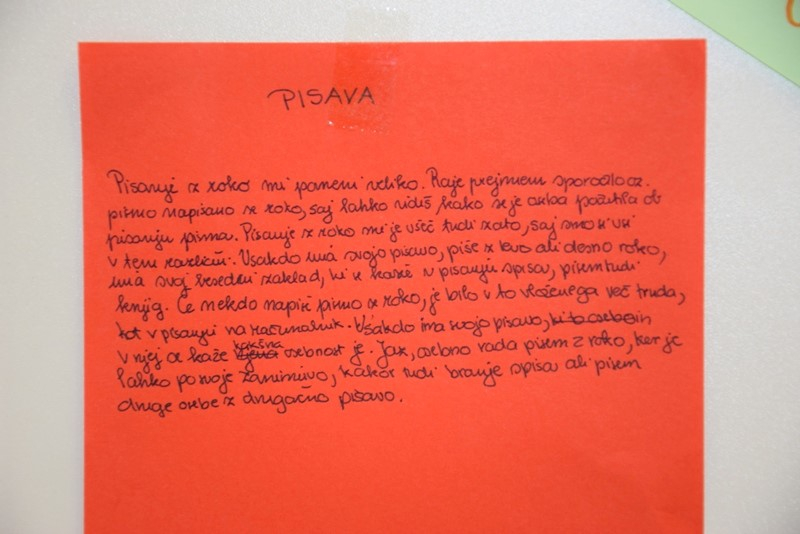 PISAVA
Pisanje z roko mi pomeni veliko. Raje prejmem sporočilo oz.
pismo napisano z roko, saj lahko vidiš, kako se je oseba počutila ob
pisanju pisma. Pisanje z roko mi je všeč tudi zato, saj smo si vsi
v tem različni. Vsakdo ima svojo pisavo, piše z levo ali desno roko,
ima svoj besedni zaklad, ki se kaže v pisanju spisov, pisem tudi
knjig. Če nekdo napiše pismo z roko, je bilo v to vloženega več truda,
kot v pisanju na računalnik. Vsakdo ima svojo pisavo,
v njej se kaže kakšna osebnost je. Jaz, osebno rada pišem z roko, ker je
lahko po svoje zanimivo, kakor tudi branje spisa ali pisem
druge osebe z drugačno pisavo.